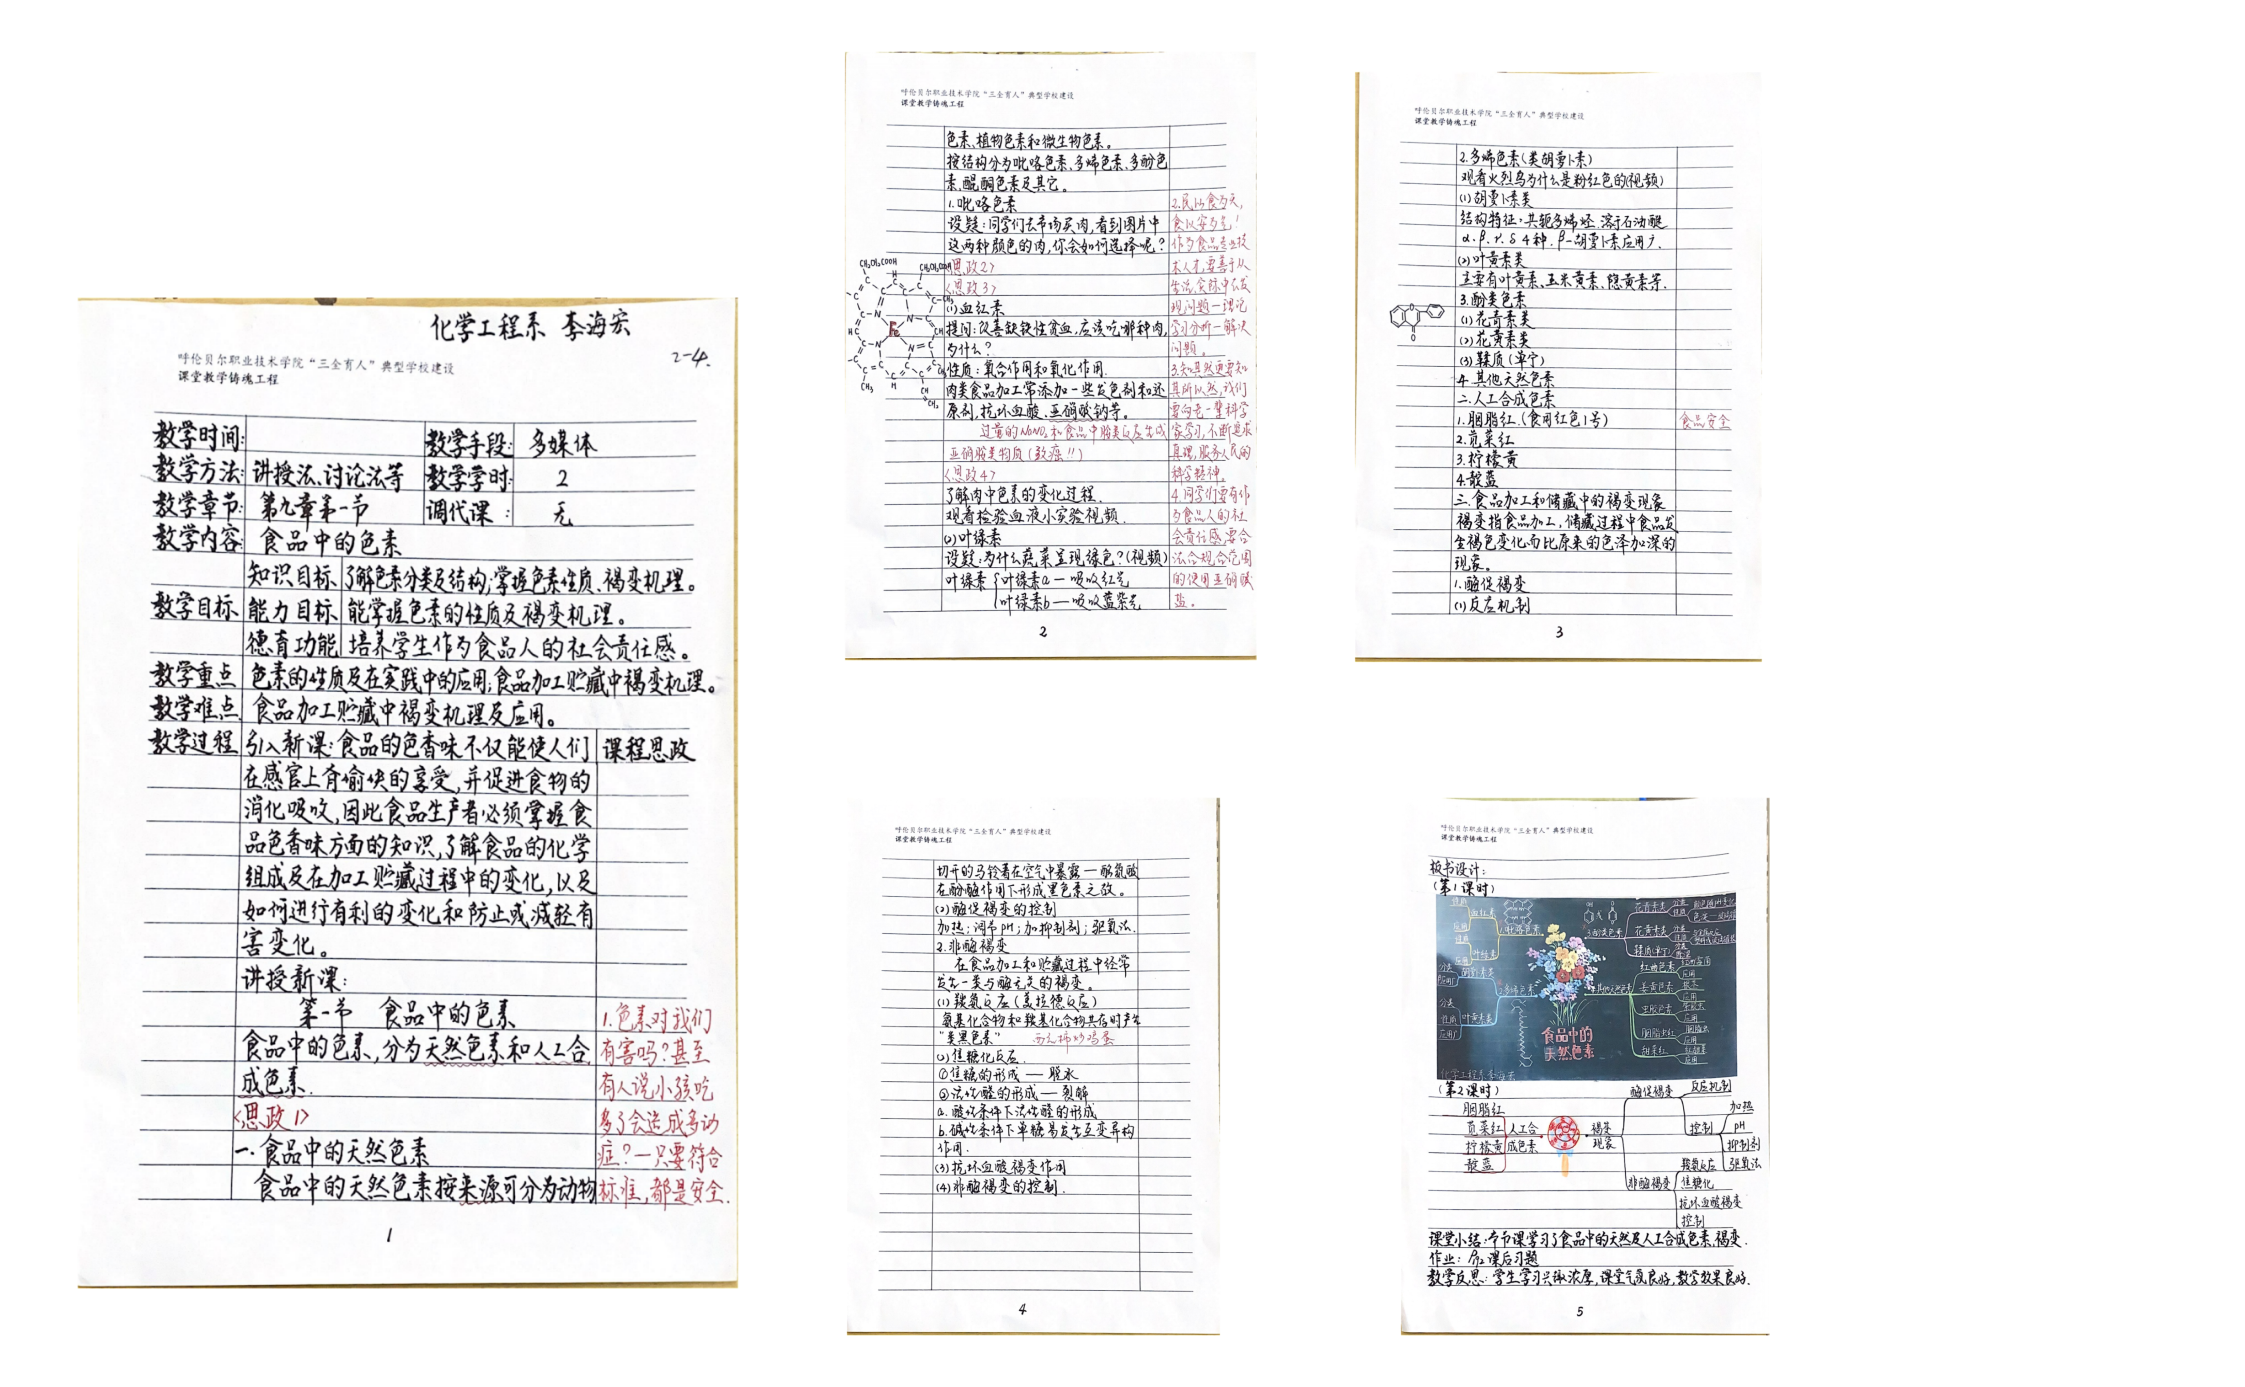 化学工程系 李海宏
呼伦贝尔职业技术学院“三全育人”典型学校建设
2-4.
课堂教学铸魂工程
教学时间: 教学手段: 多媒体
教学方法: 讲授法、讨论法等 教学学时: 2
教学章节: 第九章第一节 调代课: 无
教学内容: 食品中的色素
知识目标 了解色素分类及结构;掌握色素性质、褐变机理。
教学目标 能力目标 能掌握色素的性质及褐变机理。
德育功能 培养学生作为食品人的社会责任感。
教学重点 色素的性质及在实践中的应用;食品加工贮藏中褐变机理。
教学难点 食品加工贮藏中褐变机理及应用。
教学过程 引入新课:食品的色香味不仅能使人们 课程思政
在感官上有愉快的享受,并促进食物的
消化吸收,因此食品生产者必须掌握食
品色香味方面的知识,了解食品的化学
组成及在加工贮藏过程中的变化,以及
如何进行有利的变化和防止或减轻有
害变化。
讲授新课:
第一节 食品中的色素
食品中的色素,分为天然色素和人工合
成色素.
<思政1>
一.食品中的天然色素
食品中的天然色素按来源可分为动物
1.色素对我们
有害吗?甚至
有人说小孩吃
多了会造成多动
症?一只要符合
标准,都是安全.
1
呼伦贝尔职业技术学院“三全育人”典型学校建设
课堂教学铸魂工程
色素、植物色素和微生物色素。
按结构分为吡咯色素、多烯色素、多酚色
素、醌酮色素及其它。
1.吡咯色素
设疑:同学们去市场买肉,看到图片中
这两种颜色的肉,你会如何选择呢?
<思政2>
<思政3>
(1)血红素
提问:改善缺铁性贫血,应该吃哪种肉,
为什么?
性质:氧合作用和氧化作用.
肉类食品加工常添加一些发色剂和还
原剂,抗坏血酸、亚硝酸钠等。
过量的NaNO₂和食品中胺类反应生成
亚硝胺类物质(致癌!!)
<思政4>
了解肉中色素的变化过程.
观看检验血液小实验视频.
(2)叶绿素
设疑:为什么蔬菜呈现绿色?(视频)
叶绿素{叶绿素a—吸收红光
叶绿素b—吸收蓝紫光
2.民以食为天,
食以安为先!
作为食品专业技
术人才,要善于从
生活,实际中去发
现问题—理论
学习分析—解决
问题。
3.知其然更要知
其所以然,我们
要向老一辈科学
家学习,不断追求
真理,服务人民的
科学精神.
4.同学们要有作
为食品人的社
会责任感,要合
法合规合范围
的使用亚硝酸
盐。
2
呼伦贝尔职业技术学院“三全育人”典型学校建设
课堂教学铸魂工程
2.多烯色素(类胡萝卜素)
观看火烈鸟为什么是粉红色的(视频)
(1)胡萝卜素类
结构特征:共轭多烯烃.溶于石油醚
α.β.γ.δ 4种.β-胡萝卜素应用广.
(2)叶黄素类
主要有叶黄素、玉米黄素、隐黄素等.
3.酚类色素
(1)花青素类
(2)花黄素类
(3)鞣质(单宁)
4.其他天然色素
二.人工合成色素
1.胭脂红.(食用红色1号) 食品安全
2.苋菜红
3.柠檬黄
4.靛蓝
三.食品加工和储藏中的褐变现象
褐变指食品加工,储藏过程中食品发
生褐色变化而比原来的色泽加深的
现象。
1.酶促褐变
(1)反应机制
3
呼伦贝尔职业技术学院“三全育人”典型学校建设
课堂教学铸魂工程
切开的马铃薯在空气中暴露—酪氨酸
在酚酶作用下形成黑色素之故。
(2)酶促褐变的控制
加热;调节pH;加抑制剂;驱氧法.
2.非酶褐变
在食品加工和贮藏过程中经常
发生一类与酶无关的褐变。
(1)羰氨反应(美拉德反应)
氨基化合物和羰基化合物共存时产生
“类黑色素” 西红柿炒鸡蛋
(2)焦糖化反应.
①焦糖的形成—脱水
②活性醛的形成—裂解
a.酸性条件下活性醛的形成
b.碱性条件下单糖易发生互变异构
作用.
(3)抗坏血酸褐变作用
(4)非酶褐变的控制.
4
呼伦贝尔职业技术学院“三全育人”典型学校建设
课堂教学铸魂工程
板书设计:
(第1课时)
食品中的
天然色素
化学工程系 李海宏
血红素
叶绿素
1.吡咯色素
叶黄素类
2.多烯色素
3.酚类色素
花青素类
花黄素类
红曲色素
姜黄色素
虫胶色素
胭脂虫红
甜菜红
(第2课时)
胭脂红
苋菜红
柠檬黄
靛蓝
人工合
成色素
褐变
现象
酶促褐变
反应机制
控制
加热
pH
抑制剂
驱氧法
非酶褐变
羰氨反应
焦糖化
抗坏血酸褐变
控制
课堂小结:本节课学习了食品中的天然及人工合成色素,褐变.
作业: P₁₂课后习题
教学反思:学生学习兴趣浓厚,课堂气氛良好,教学效果良好.
5